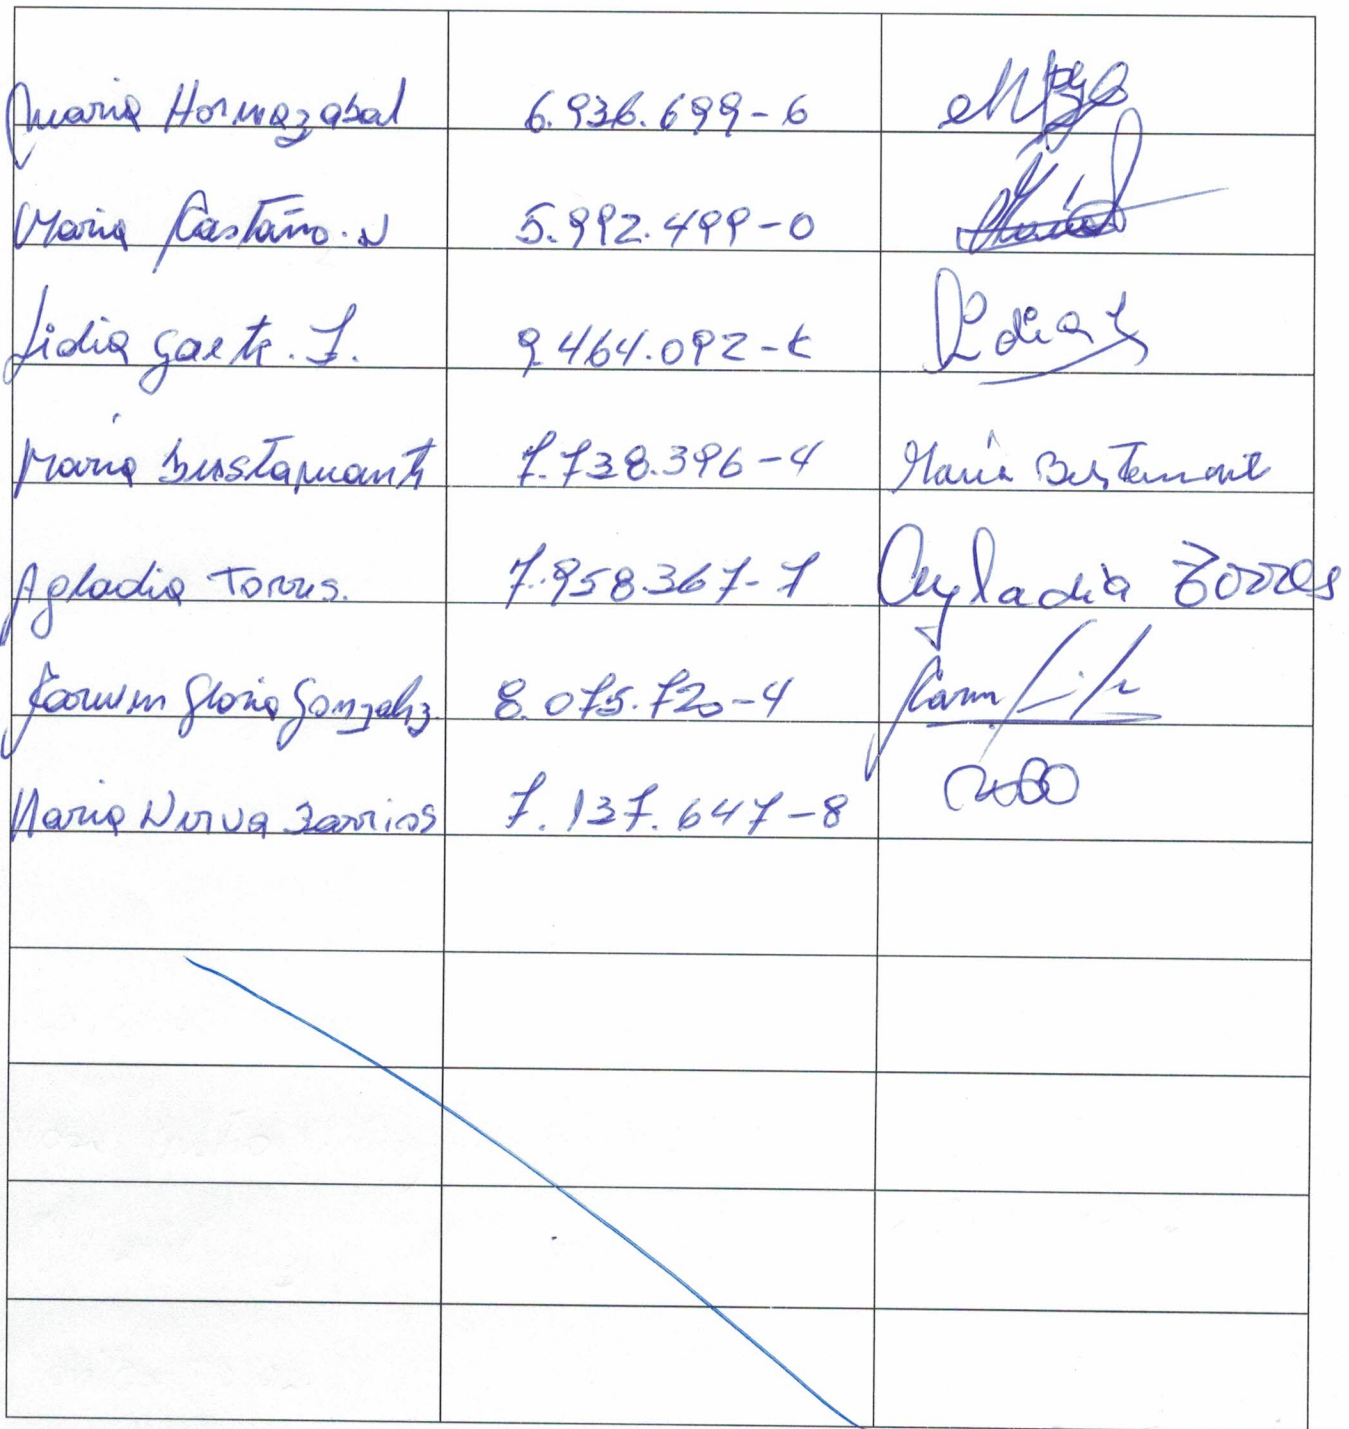 Maria Hormazabal 6.936.699-6
Maria Castaño. N 5.992.499-0
Lidia Gaete. I. 9.464.092-K Lidia
Maria Bustamante 7.738.396-4 Maria Bustamante
Agladia Torres. 7.958.367-7 Agladia Torres
Carmen Gloria Gonzalez. 8.075.720-4
Maria Nerva Barrios 7.137.647-8